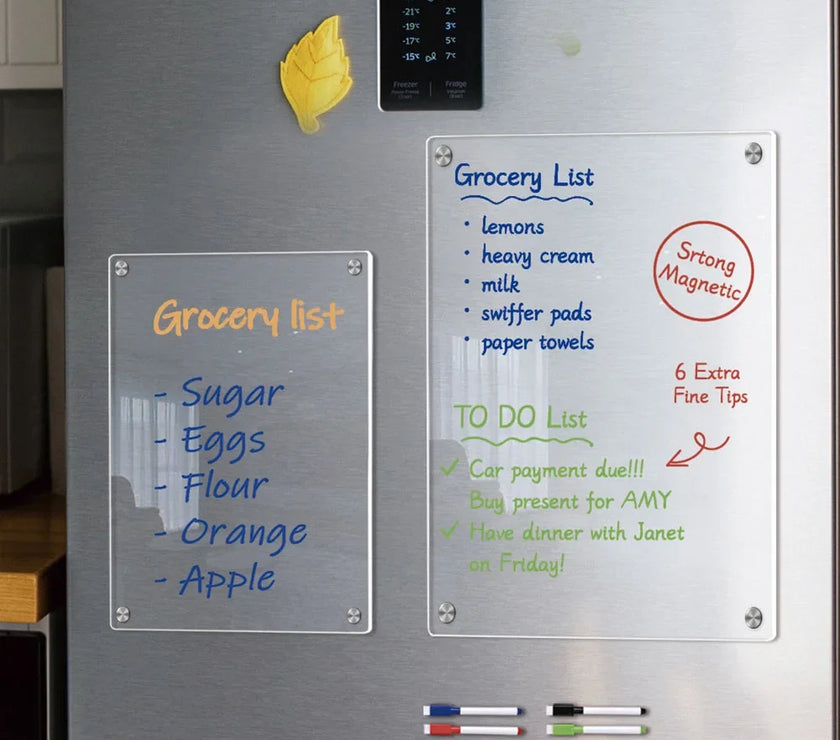 -21℃ 2℃
-19℃ 3℃
-17℃ 5℃
-15℃ 7℃
Freezer Fridge
Grocery list
- Sugar
- Eggs
- Flour
- Orange
- Apple
Grocery List
• lemons
• heavy cream
• milk
• swiffer pads
• paper towels
Srtong
Magnetic
6 Extra
Fine Tips
TO DO List
✓ Car payment due!!!
Buy present for AMY
✓ Have dinner with Janet
on Friday!